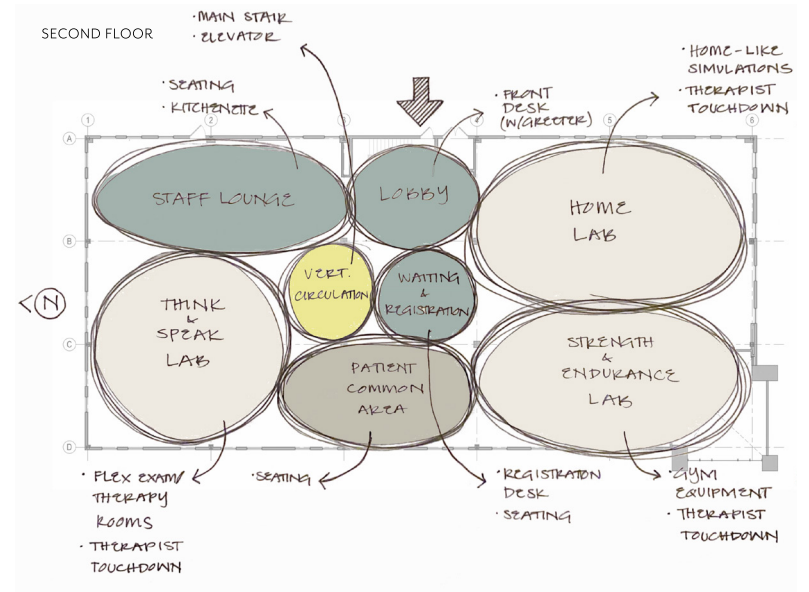 SECOND FLOOR
• MAIN STAIR
• ELEVATOR
• SEATING
• KITCHENETTE
• FRONT
DESK
(W/GREETER)
• HOME-LIKE
SIMULATIONS
• THERAPIST
TOUCHDOWN
1
2
3
4
5
6
A
B
C
D
STAFF LOUNGE
LOBBY
HOME
LAB
VERT.
CIRCULATION
WAITING
&
REGISTRATION
N
THINK
&
SPEAK
LAB
PATIENT
COMMON
AREA
STRENGTH
&
ENDURANCE
LAB
• FLEX EXAM/
THERAPY
ROOMS
• THERAPIST
TOUCHDOWN
• SEATING
• REGISTRATION
DESK
• SEATING
• GYM
EQUIPMENT
• THERAPIST
TOUCHDOWN